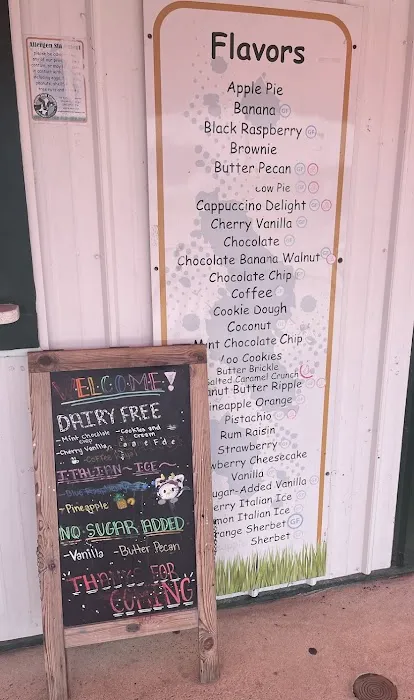 Allergen Sta
Flavors
Apple Pie
Banana GF
Black Raspberry GF
Brownie
Butter Pecan GF
Cow Pie
Cappuccino Delight GF
Cherry Vanilla GF
Chocolate GF
Chocolate Banana Walnut GF
Chocolate Chip GF
Coffee
Cookie Dough
Coconut
Mint Chocolate Chip
oo Cookies
Butter Brickle
alted Caramel Crunch
nut Butter Ripple
ineapple Orange
Pistachio
Rum Raisin
Strawberry
wberry Cheesecake
Vanilla
ugar-Added Vanilla
erry Italian Ice
mon Italian Ice
range Sherbet GF
Sherbet
WELCOME!
DAIRY FREE
-Mint Chocolate Chip -Cookies and Cream
-Cherry Vanilla
ITALIAN ICE
-Pineapple
NO SUGAR ADDED
-Vanilla -Butter Pecan
THANKS FOR
COMING